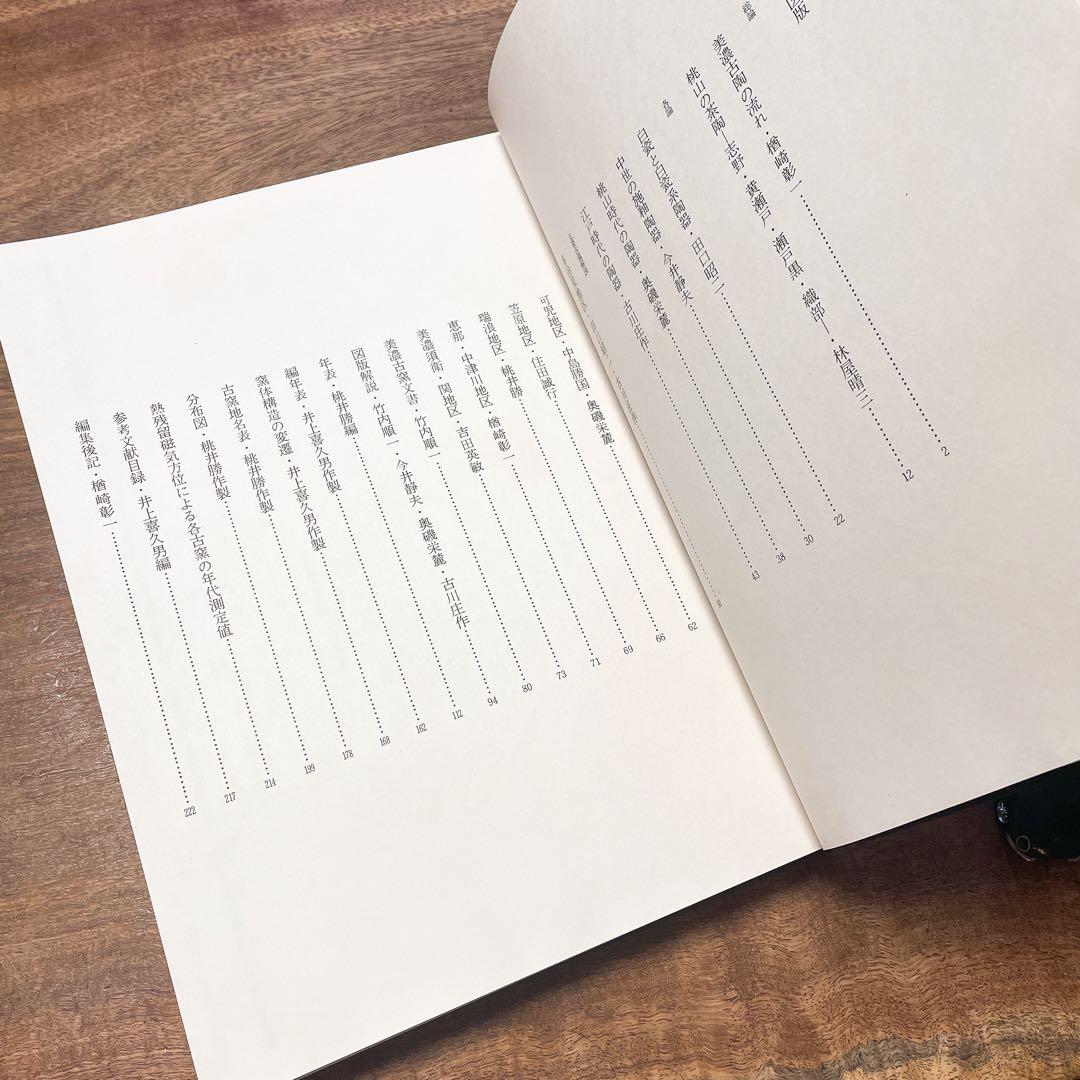 版
総論
美濃古陶の流れ・楢崎彰一……2
桃山の茶陶―志野・黄瀬戸・瀬戸黒・織部―林屋晴三……12
各論
白瓷と白瓷系陶器・田口昭二……22
中世の施釉陶器・今井静夫……30
桃山時代の陶器・奥磯栄麓……38
江戸時代の陶器・古川庄作……43
可児地区・中島勝国・奥磯栄麓……62
笠原地区・住田誠行……66
瑞浪地区・桃井勝……69
恵那・中津川地区・楢崎彰一……71
美濃須衛・関地区・吉田英敏……73
美濃古窯文書・竹内順一……80
図版解説・竹内順一・今井静夫・奥磯栄麓・古川庄作……94
年表・桃井勝編……112
編年表・井上喜久男作製……162
窯体構造の変遷・井上喜久男作製……168
古窯地名表・桃井勝作製……178
分布図・桃井勝作製……199
熱残留磁気方位による各古窯の年代測定値……214
参考文献目録・井上喜久男編……217
編集後記・楢崎彰一……222